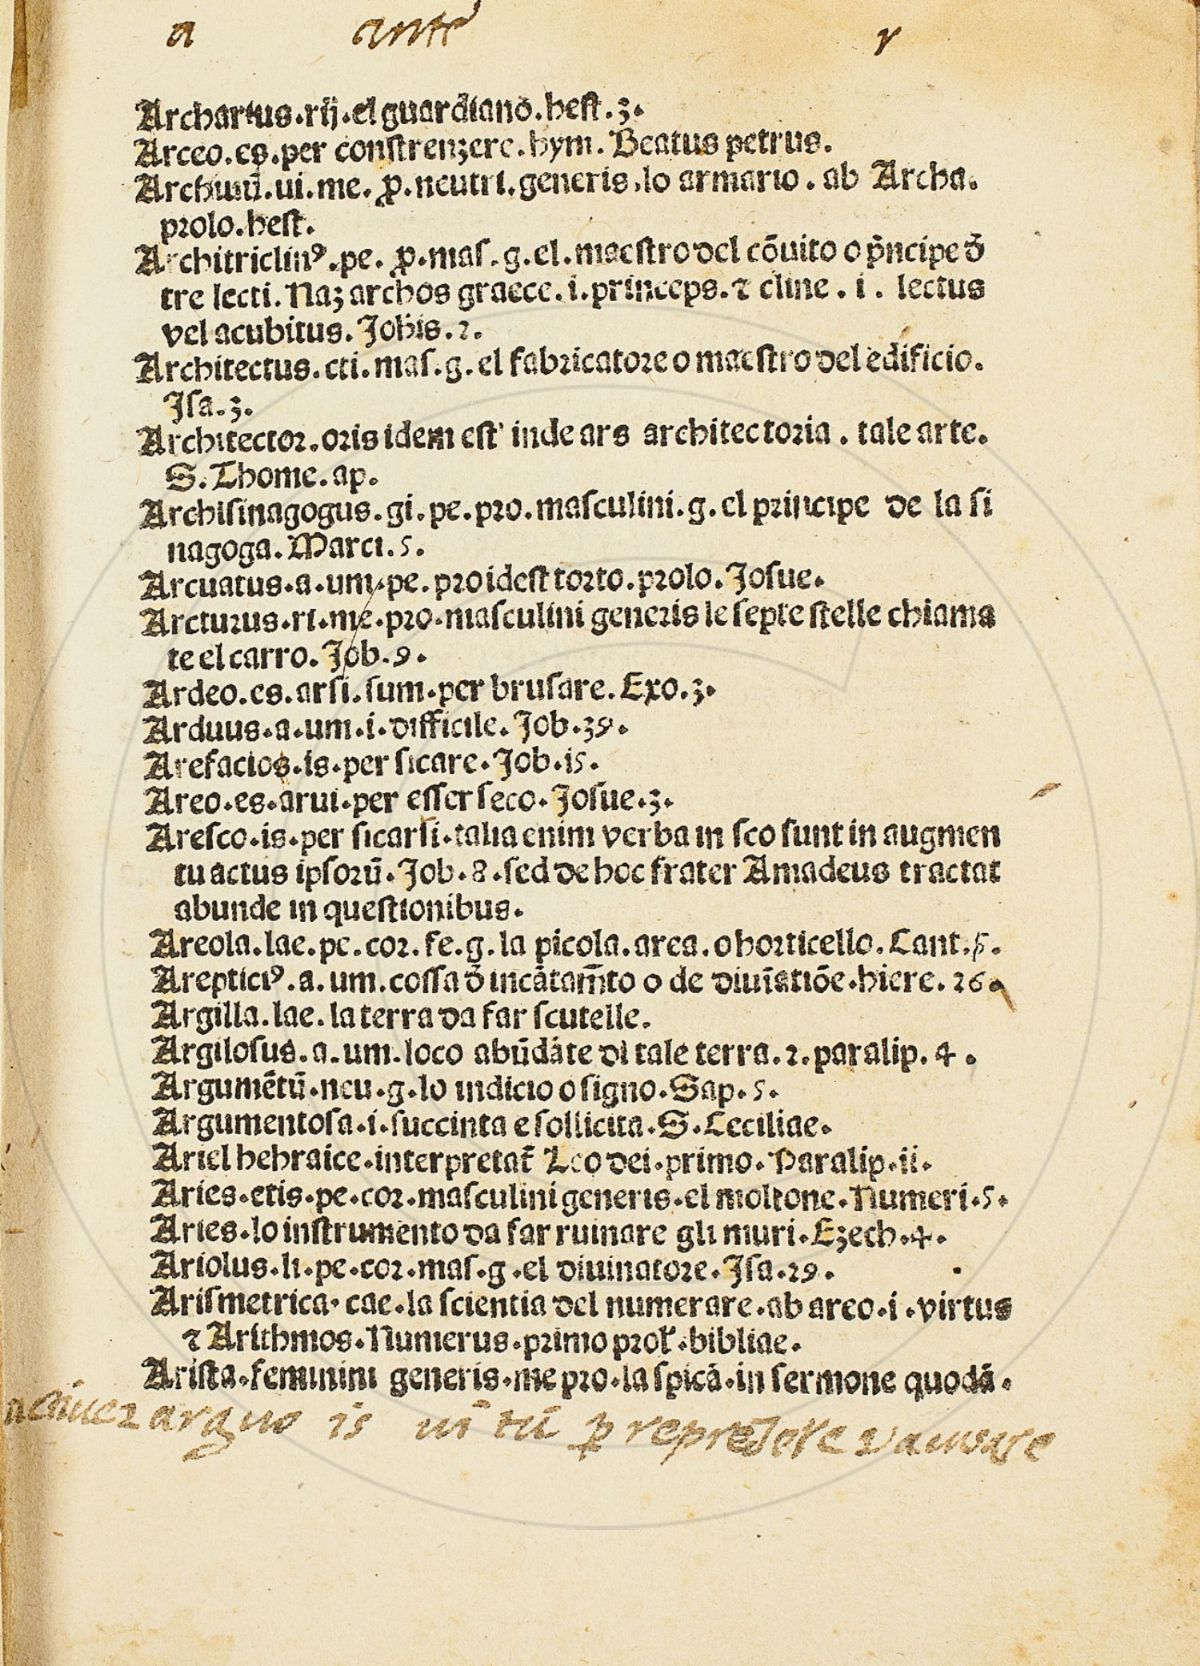 a ante r
Archarius.rij.el guardiano.hest.3.
Arceo.es.per constrenzere.hym. Beatus petrus.
Archiuũ.ui.me.ꝓ.neutri.generis.lo armario.ab Archa.
prolo.hest.
Architriclinꝰ.pe.ꝓ.mas.g.el.maestro del cõuito o p̃ncipe đ
tre lecti. Naz archos graece.i.princeps.⁊ cline.i. lectus
vel acubitus. Joh̃is.2.
Architectus.cti.mas.g.el fabricatore o maestro del edificio.
Isa.3.
Architector.oris idem est inde ars architectoria.tale arte.
S.Thome.ap.
Archisinagogus.gi.pe.pro.masculini.g.el principe de la si
nagoga.Marci.5.
Arcuatus.a.um.pe.pro idest torto.prolo.Josue.
Arcturus.ri.me.pro.masculini generis le septe stelle chiama
te el carro. Job.9.
Ardeo.es.arsi.sum.per brusare. Exo.3.
Arduus.a.um.i.difficile. Job.39.
Arefacios.is.per sicare.Job.15.
Areo.es.arui.per esser seco.Josue.3.
Aresco.is.per sicarsi.talia enim verba in sco sunt in augmen
tu actus ipsorũ.Job.8.sed de hoc frater Amadeus tractat
abunde in questionibus.
Areola.lae.pe.cor.fe.g.la picola.area.o horticello.Cant.5.
Arepticiꝰ.a.um.cossa đ incãtam̃to o de diuĩatiõe.hiere.26.
Argilla.lae.la terra da far scutelle.
Argilosus.a.um.loco abũdãte di tale terra.2.paralip.4.
Argumẽtũ.neu.g.lo indicio o signo.Sap.5.
Argumentosa.i.succinta e sollicita.S.Ceciliae.
Ariel hebraice.interpretat̃ Leo dei.primo.Paralip.ii.
Aries.etis.pe.cor.masculini generis.el moltone.Numeri.5.
Aries.lo instrumento da far ruinare gli muri.Ezech.4.
Ariolus.li.pe.cor.mas.g.el diuinatore.Isa.29.
Arismetrica.cae.la scientia del numerare.ab areo.i.virtus
⁊ Arithmos.Numerus.primo prol̃.bibliae.
Arista.feminini generis.me pro.la spicã.in sermone quodã.
arguo is ui tũ ꝑ